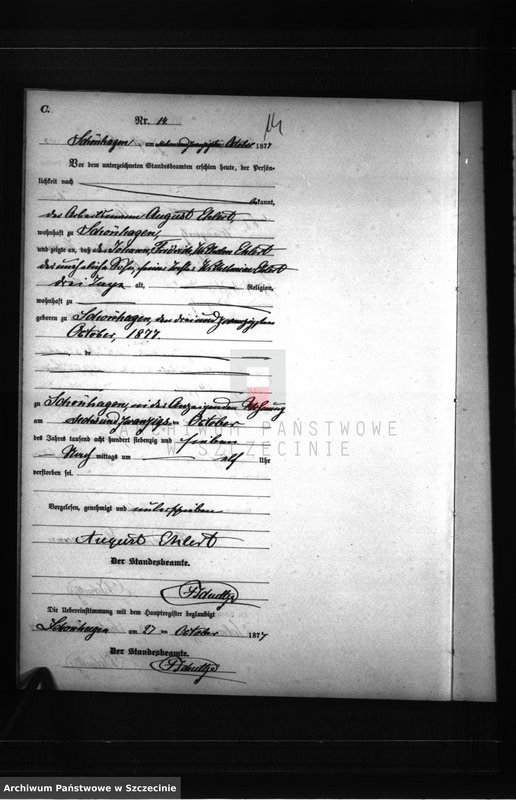 C.
Nr. 14
14
Schönhagen am siebenundzwanzigsten October 1877
Vor dem unterzeichneten Standesbeamten erschien heute, der Persön-
lichkeit nach
bekannt,
der Arbeitsmann August Ehlert
wohnhaft zu Schönhagen,
und zeigte an, daß der Johann, Friedrich, Wilhelm Ehlert
der uneheliche Sohn, seiner Tochter Wilhelmine Ehlert
drei Tage alt, Religion,
wohnhaft zu
geboren zu Schönhagen, den dreiundzwanzigsten
October, 1877.
de
zu Schönhagen, in des Anzeigenden Wohnung
am sechsundzwanzigsten October
des Jahres tausend acht hundert siebenzig und sieben
Nachmittags um elf Uhr
verstorben sei.
Vorgelesen, genehmigt und unterschrieben
August Ehlert
Der Standesbeamte.
Die Uebereinstimmung mit dem Hauptregister beglaubigt
Schönhagen am 27 ten October 1877
Der Standesbeamte.
ARCHIWUM PAŃSTWOWE
W SZCZECINIE
Archiwum Państwowe w Szczecinie